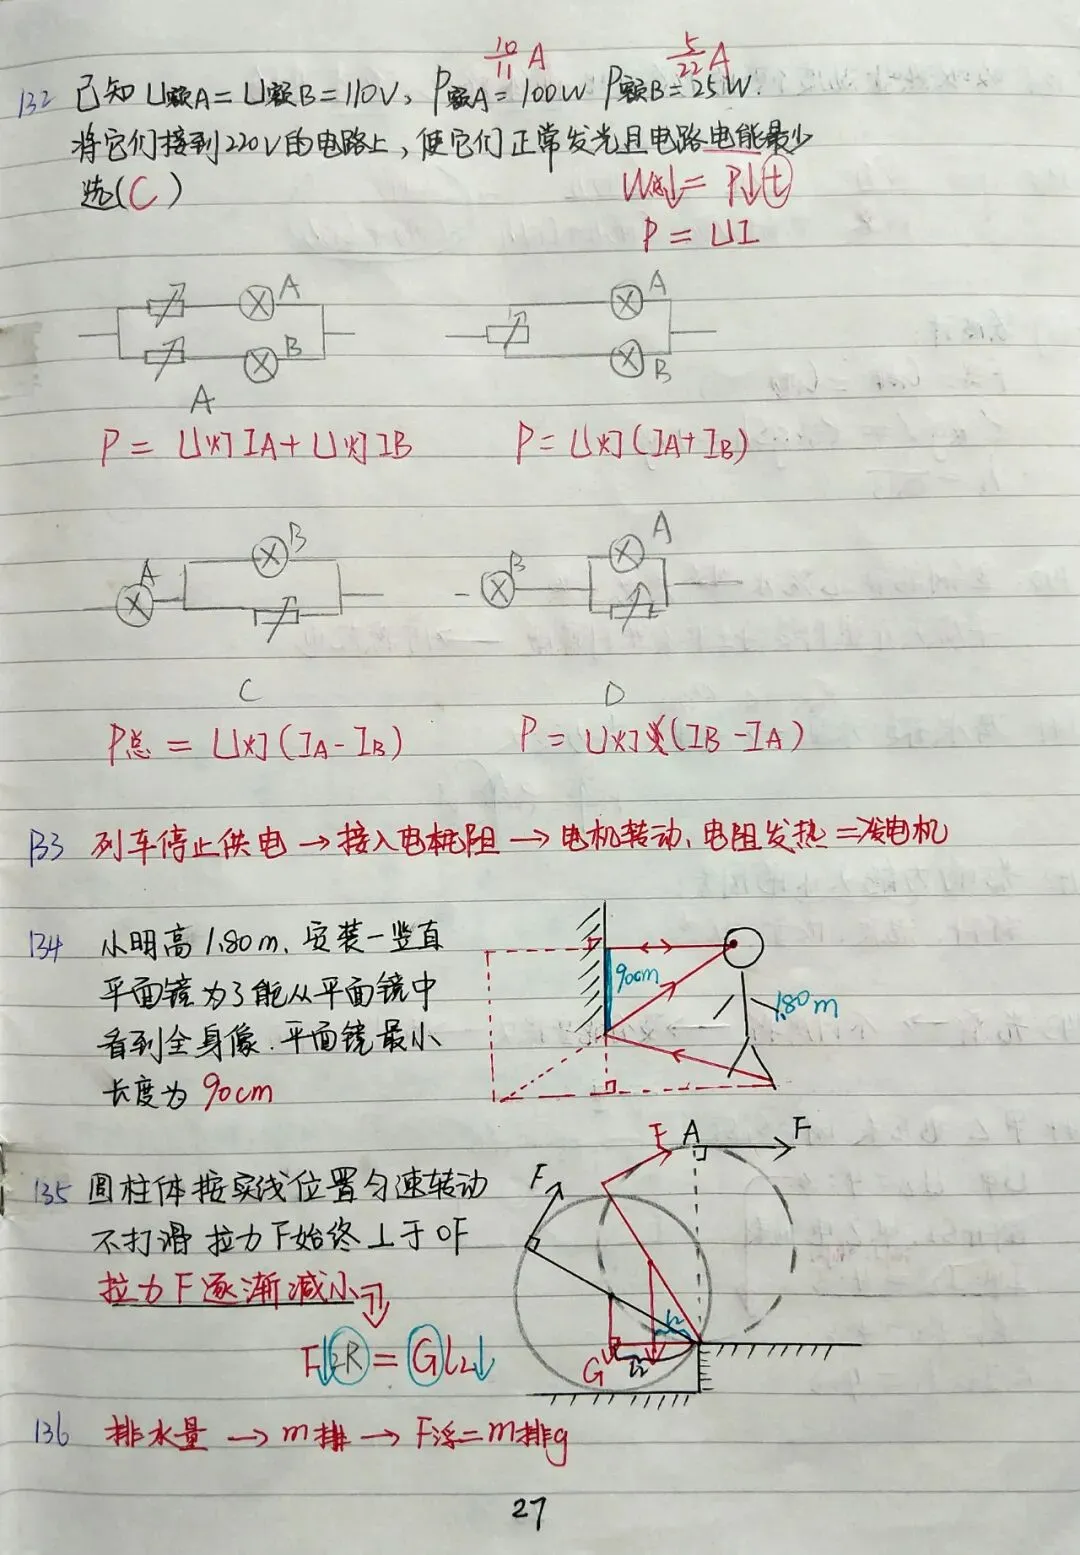 10/11 A 5/22 A
132 已知U额A=U额B=110V、P额A=100W P额B=25W.
将它们接到220V的电路上,使它们正常发光且电路电能最少
选(C)
W总↓=P↓t
P=UI
A A
B B
A
P=U灯IA+U灯IB P=U灯(IA+IB)
B A
A B
C D
P总=U灯(IA-IB) P=U灯(IB-IA)
133 列车停止供电→接入电阻→电机转动、电阻发热=发电机
134 小明高1.80m、安装一竖直
平面镜为了能从平面镜中
看到全身像.平面镜最小
长度为90cm
90cm
1.80m
135 圆柱体按实线位置匀速转动
不打滑 拉力F始终⊥于OF
拉力F逐渐减小
F↓2R=Gl2↓
F A F
F
l2
G l2
136 排水量→m排→F浮=m排g
27